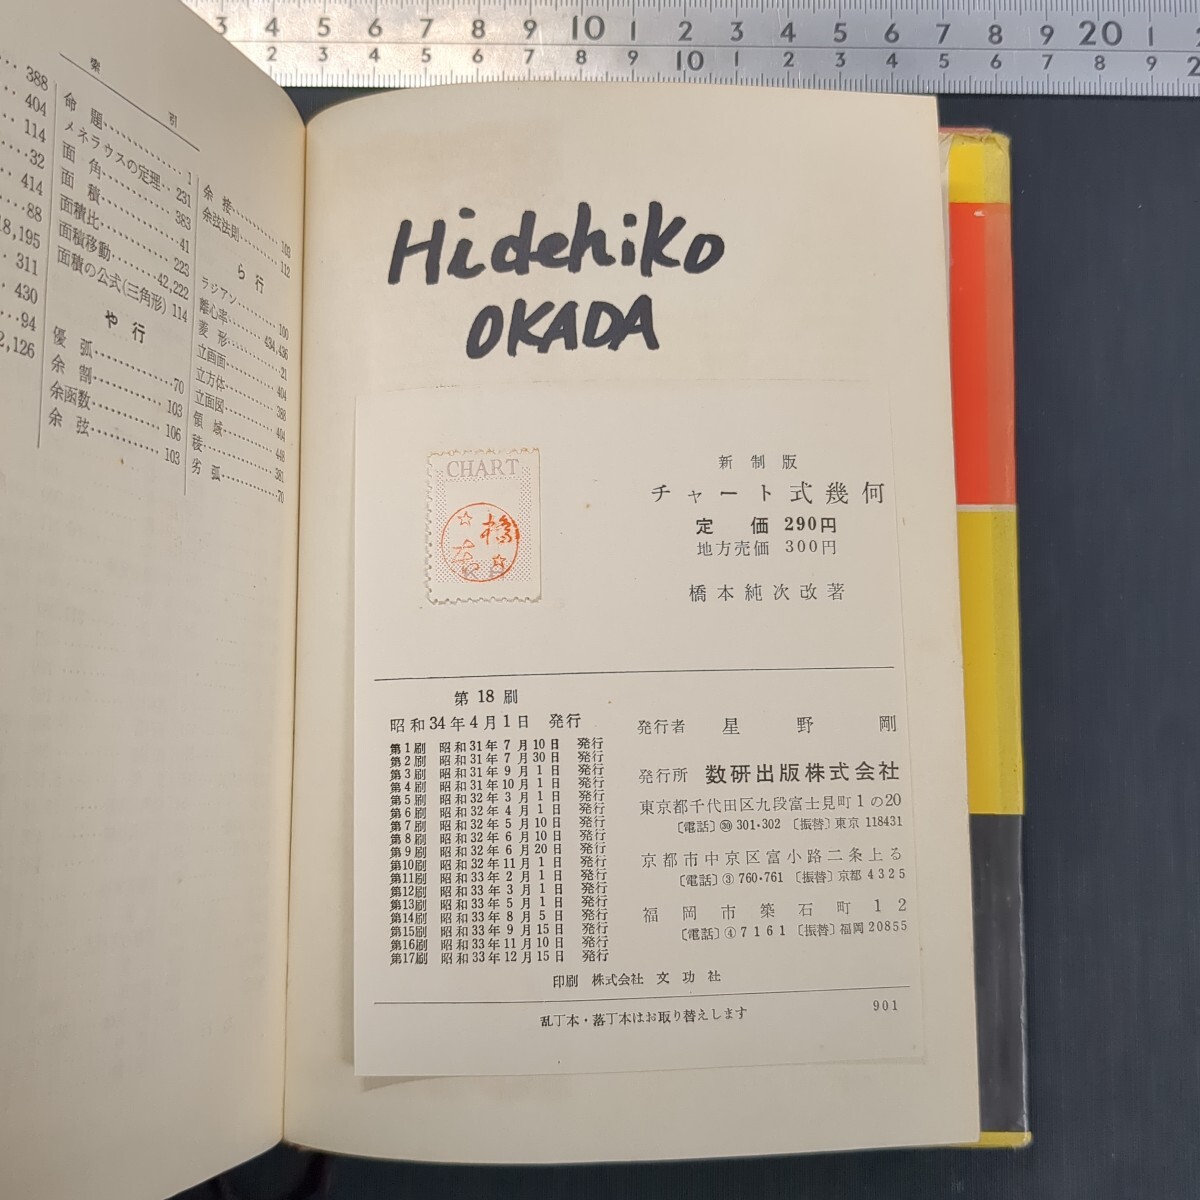 3 4 5 6 7 8 9 10 1 2 3 4 5 6 7 8 9 20 1 2
3 4 5 6 7 8 9 10 1 2 3 4 5 6 7 8 9 2
索引
388
404
114
32
414
88
18,195
311
430
94
2,126
命題 1
メネラウスの定理 231
面角 383
面積 41
面積比 223
面積移動 42,222
面積の公式(三角形) 114
や行
優弧 70
余割 103
余函数 106
余弦 103
余接 103
余弦法則 112
ら行
ラジアン 100
離心率 434,436
菱形 21
立画面 404
立方体 388
立面図 404
領域 448
稜 381
劣弧 70
Hidehiko
OKADA
CHART
橋本
新制版
チャート式幾何
定価 290円
地方売価 300円
橋本純次改著
第18刷
昭和34年4月1日 発行
第1刷 昭和31年7月10日 発行
第2刷 昭和31年7月30日 発行
第3刷 昭和31年9月1日 発行
第4刷 昭和31年10月1日 発行
第5刷 昭和32年3月1日 発行
第6刷 昭和32年4月1日 発行
第7刷 昭和32年5月10日 発行
第8刷 昭和32年6月10日 発行
第9刷 昭和32年6月20日 発行
第10刷 昭和32年11月1日 発行
第11刷 昭和33年2月1日 発行
第12刷 昭和33年3月1日 発行
第13刷 昭和33年5月1日 発行
第14刷 昭和33年8月5日 発行
第15刷 昭和33年9月15日 発行
第16刷 昭和33年11月10日 発行
第17刷 昭和33年12月15日 発行
発行者 星野剛
発行所 数研出版株式会社
東京都千代田区九段富士見町1の20
〔電話〕㉚301・302 〔振替〕東京 118431
京都市中京区富小路二条上る
〔電話〕③760・761 〔振替〕京都 4325
福岡市築石町12
〔電話〕④7161 〔振替〕福岡 20855
印刷 株式会社 文功社
乱丁本・落丁本はお取り替えします
901